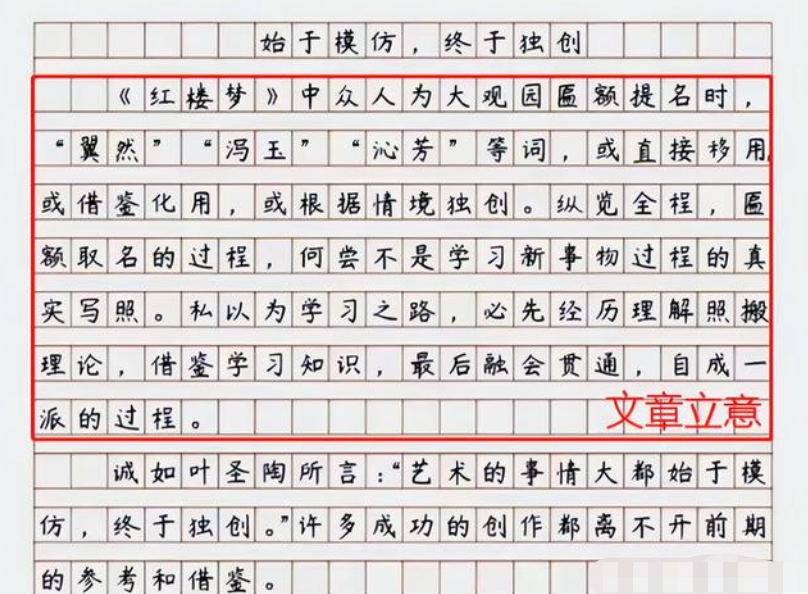 始于模仿，终于独创
《红楼梦》中众人为大观园匾额提名时，
“翼然”“冯玉”“沁芳”等词，或直接移用，
或借鉴化用，或根据情境独创。纵览全程，匾
额取名的过程，何尝不是学习新事物过程的真
实写照。私以为学习之路，必先经历理解照搬
理论，借鉴学习知识，最后融会贯通，自成一
派的过程。
文章立意
诚如叶圣陶所言：“艺术的事情大都始于模
仿，终于独创。”许多成功的创作都离不开前期
的参考和借鉴。